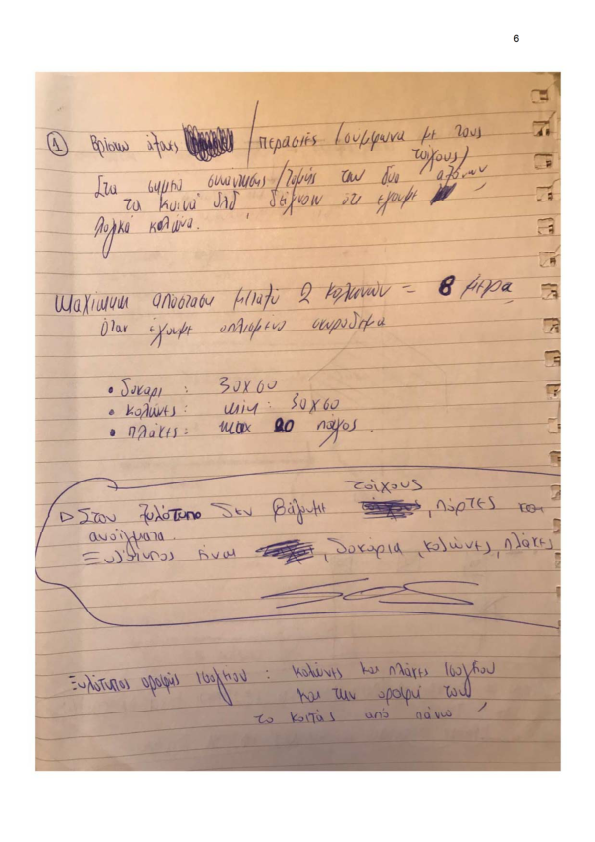 6
① Βρίσκω άξονες / περασιές (σύμφωνα με τους
τοίχους)
Στα σημεία συνάντησης / τομής των δύο αξόνων,
τα κοινά δηλ, δείχνουν ότι έχουμε
λογικά κολώνα.
Maximum απόσταση μεταξύ 2 κολωνών = 8 μέτρα,
όταν έχουμε οπλισμένο σκυρόδεμα
• δοκάρι : 30x60
• κολώνες : min : 30x60
• πλάκες : max 20 πάχος.
τοίχους
▷ Στον ξυλότυπο δεν βάζουμε , πόρτες και
ανοίγματα.
Ξυλότυπος είναι , δοκάρια, κολώνες, πλάκες
SOS
Ξυλότυπος οροφής ισογείου : κολώνες και πλάκες ισογείου
και την οροφή του,
το κοιτάς από πάνω